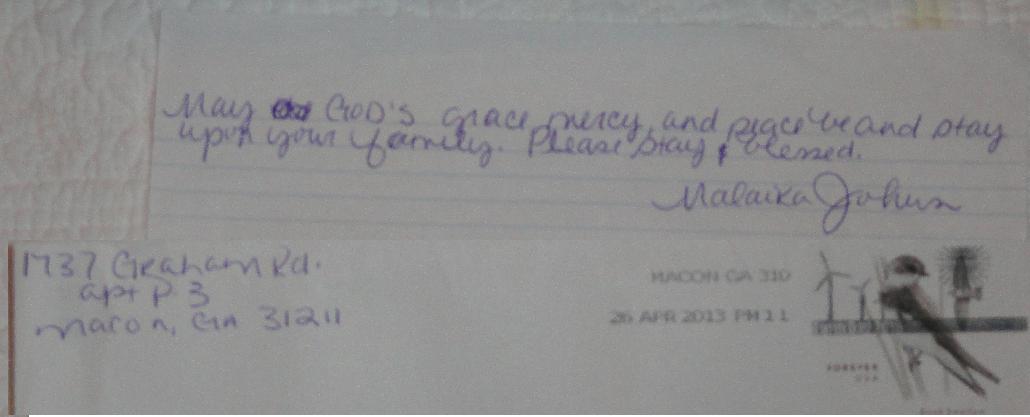 May GOD's grace, mercy, and peace be and stay
upon your family. Please stay blessed.
Malaika Johnson
1737 Graham Rd.
apt P 3
Macon, GA 31211
MACON GA 310
26 APR 2013 PM 2 L
FOREVER
USA